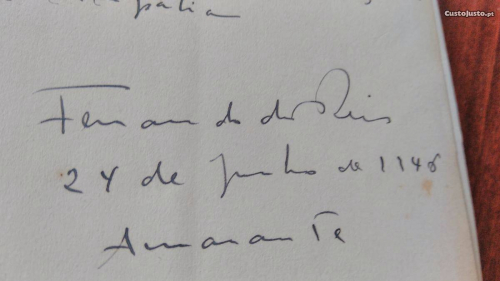 simpatia
Fernando dos Reis
24 de Junho de 1946
Amarante
CustoJusto.pt